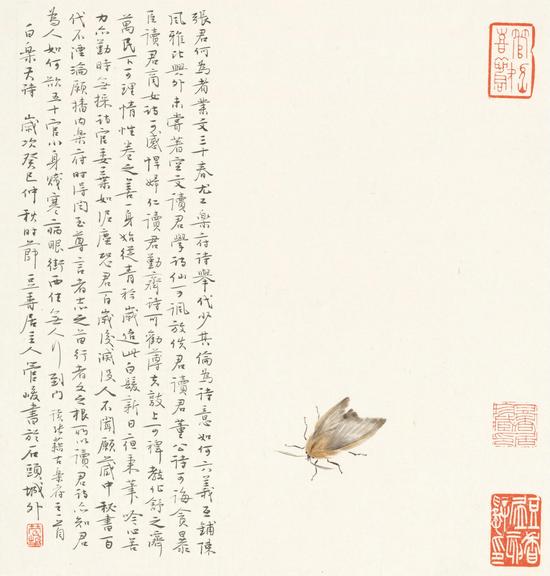 張君何為者業文三十春尤工樂府詩舉代少其倫為詩意如何六義互鋪陳
風雅比興外未嘗著空文讀君學詩仙可諷放佚君讀君董公詩可誨貪暴
臣讀君商女詩可感悍婦仁讀君勤齊詩可勸薄夫敦上可裨教化舒之濟
萬民下可理情性卷之善一身始從青衿歲迨此白髮新日秉筆吟心苦
力亦勤時無採詩官委棄如泥塵恐君百歲後滅沒人不聞願藏中秘書百
代不湮淪願播內樂府時得聞至尊言者志之苗行者文之根所以讀君詩亦知君
為人如何欲五十官小身賤病眼街西住無人行到門 讀張籍古樂府
白樂天詩 歲次癸巳仲秋時節居主人管峻書於石頭城外